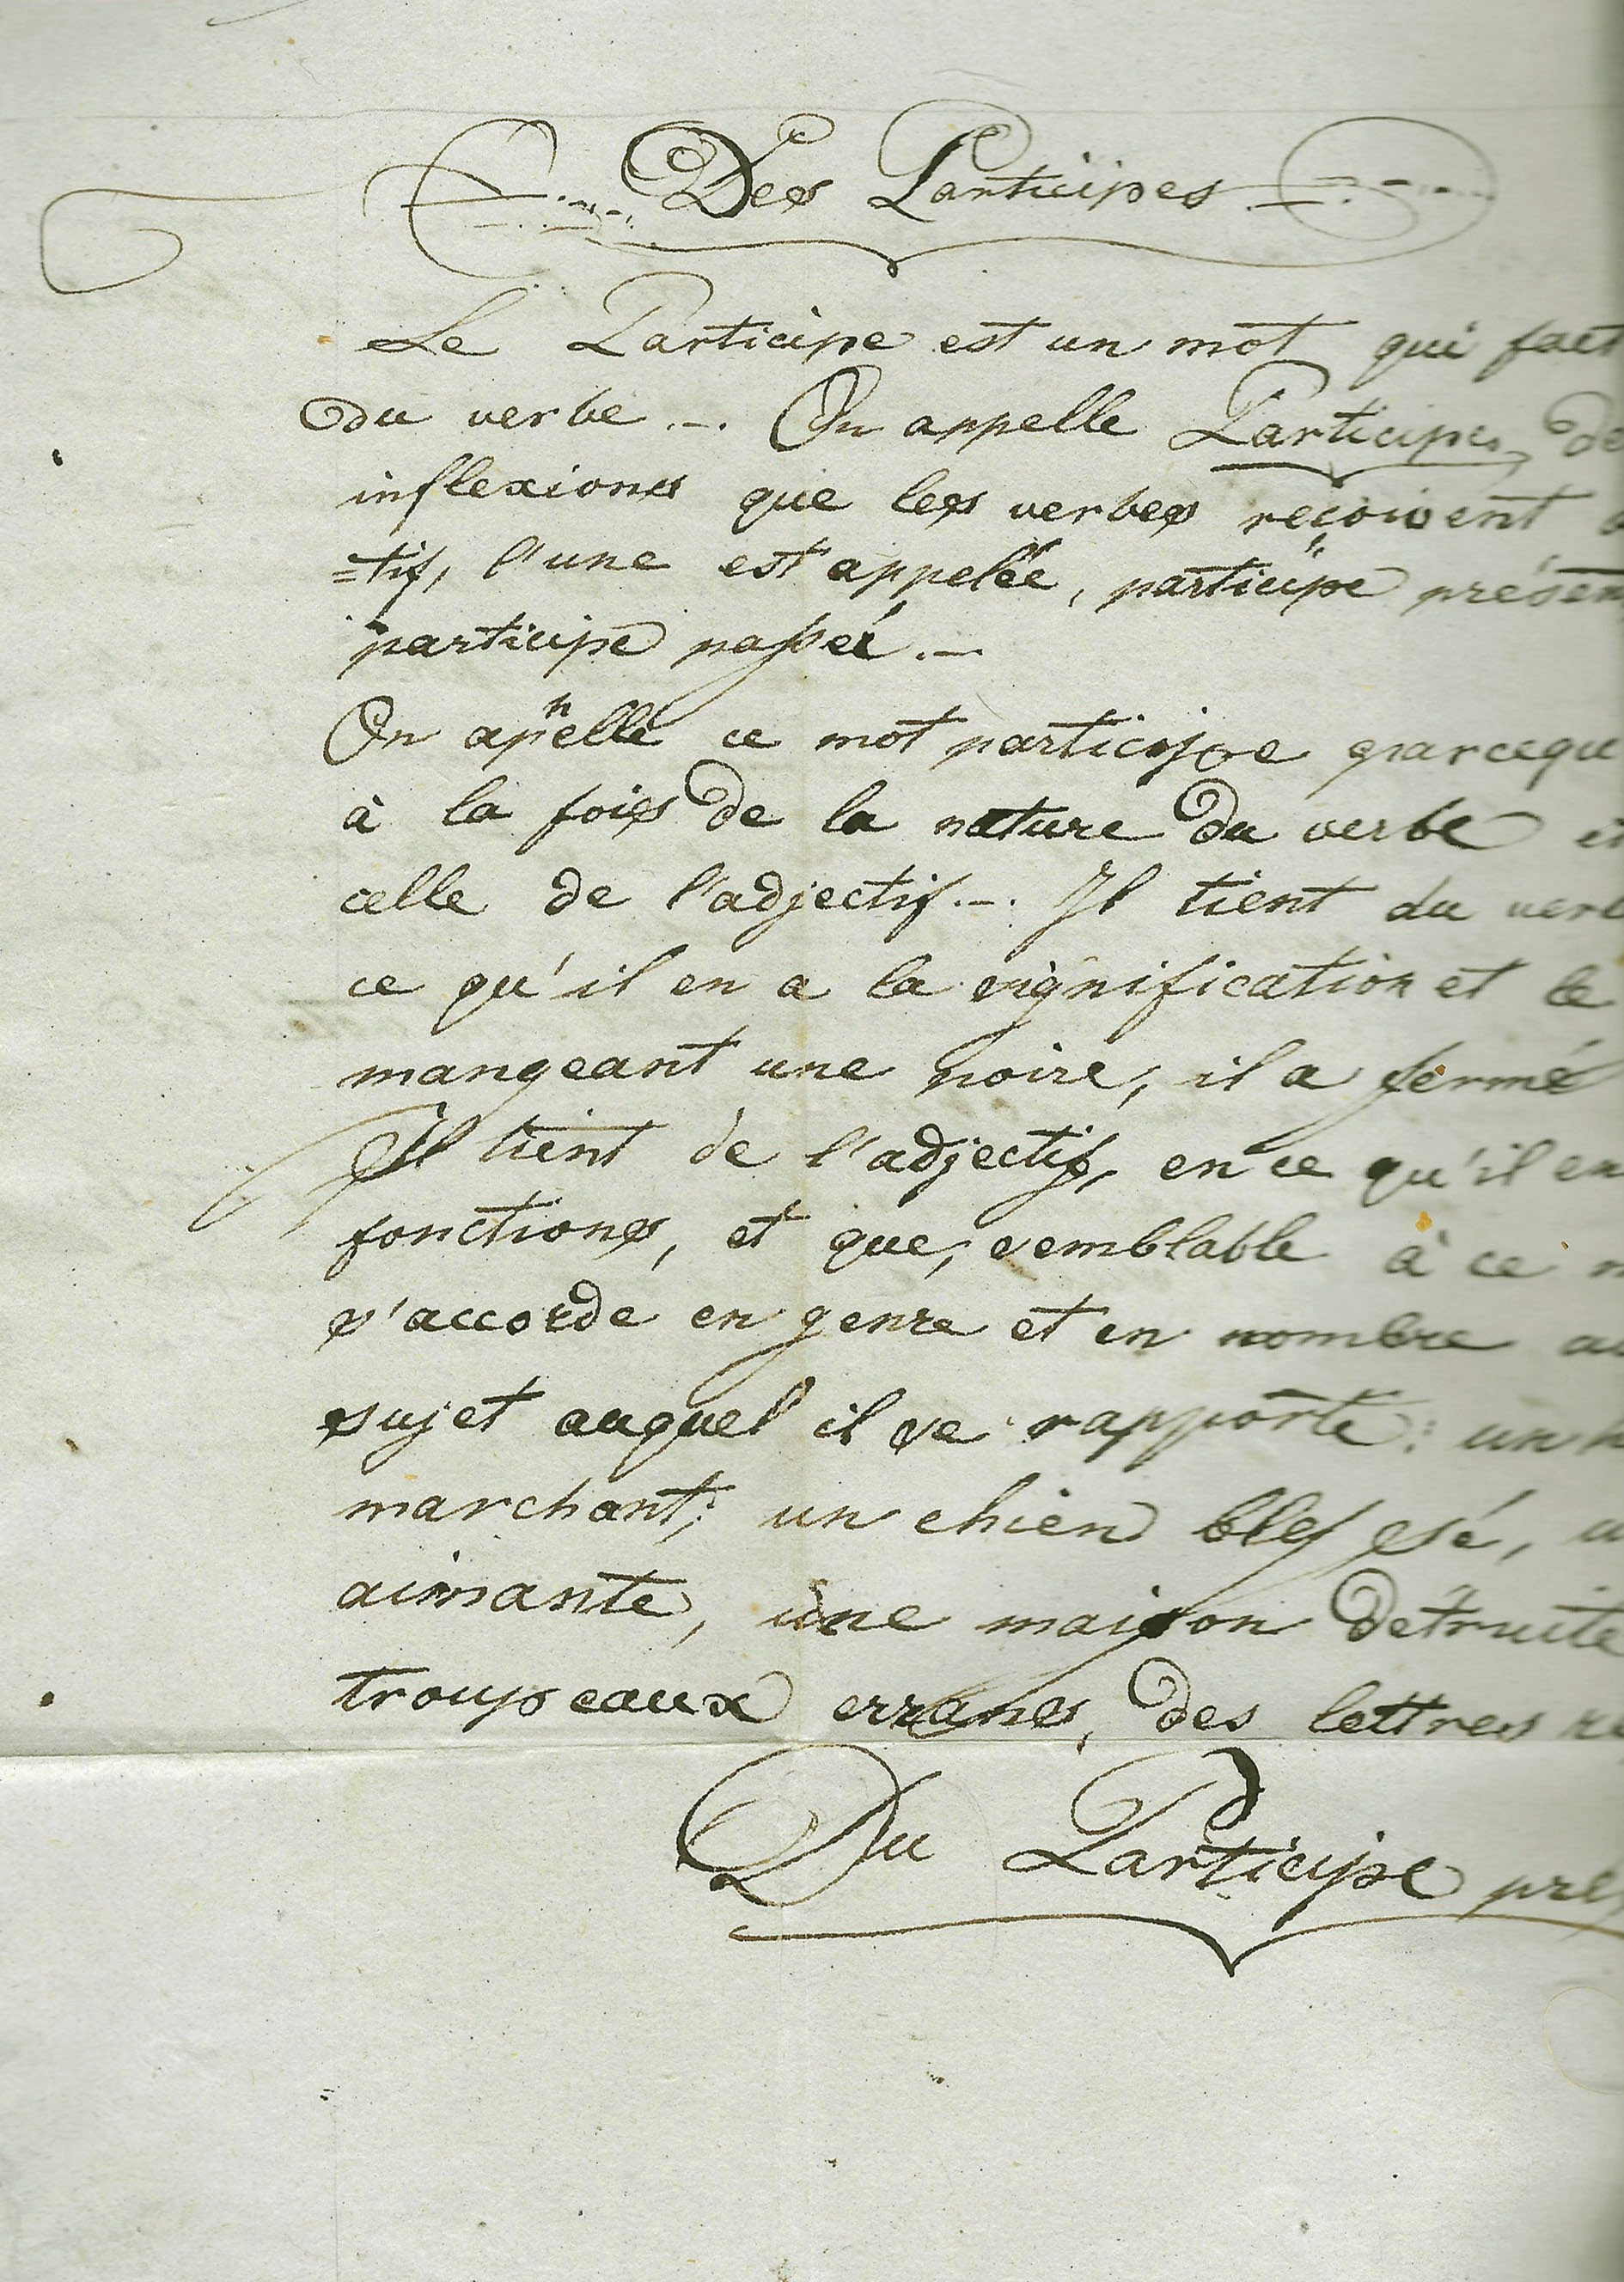 Des Participes
Le Participe est un mot qui fait
du verbe.—. On appelle Participes, de
inflexions que les verbes reçoivent
=tif, l'une est appelée, participe présen
participe passé.—
On appelle ce mot participe parcequ
à la fois de la nature du verbe et
celle de l'adjectif.—. Il tient du verb
ce qu'il en a la signification et le
mangeant une poire, il a fermé
Il tient de l'adjectif, en ce qu'il en
fonctions, et que, semblable à ce m
s'accorde en genre et en nombre au
sujet auquel il se rapporte: un h
marchant; un chien blessé, u
aimante, une maison détruite
troupeaux errans, des lettres re
Du Participe pré